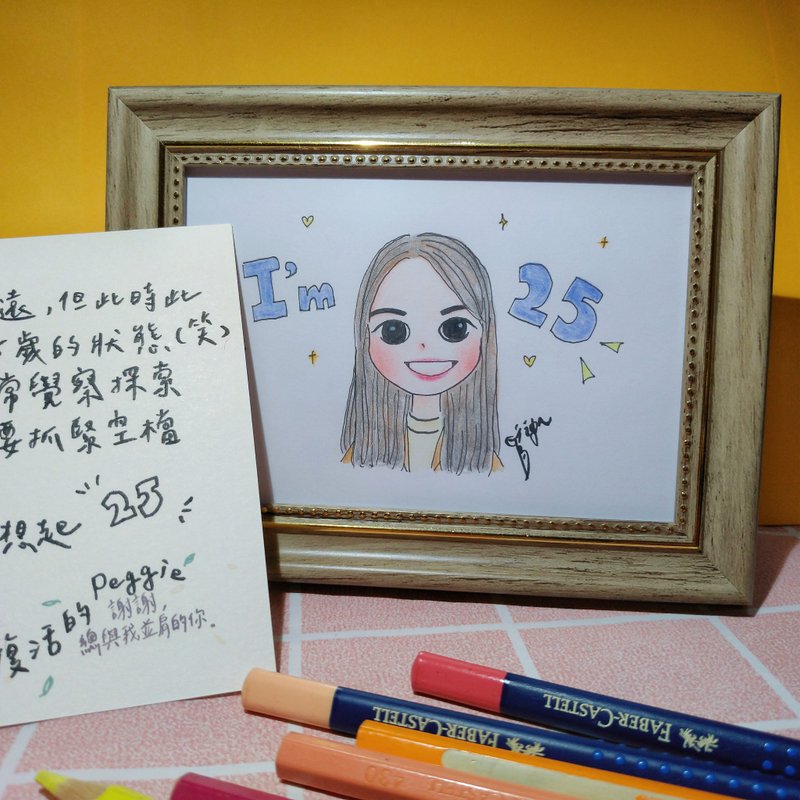 遠，但此時此
歲的狀態（笑）
常覺察探索
要抓緊空檔
想起 25
Peggie
復活的
謝謝，
總與我並肩的你。
I'm 25
FABER-CASTELL
FABER-CASTELL